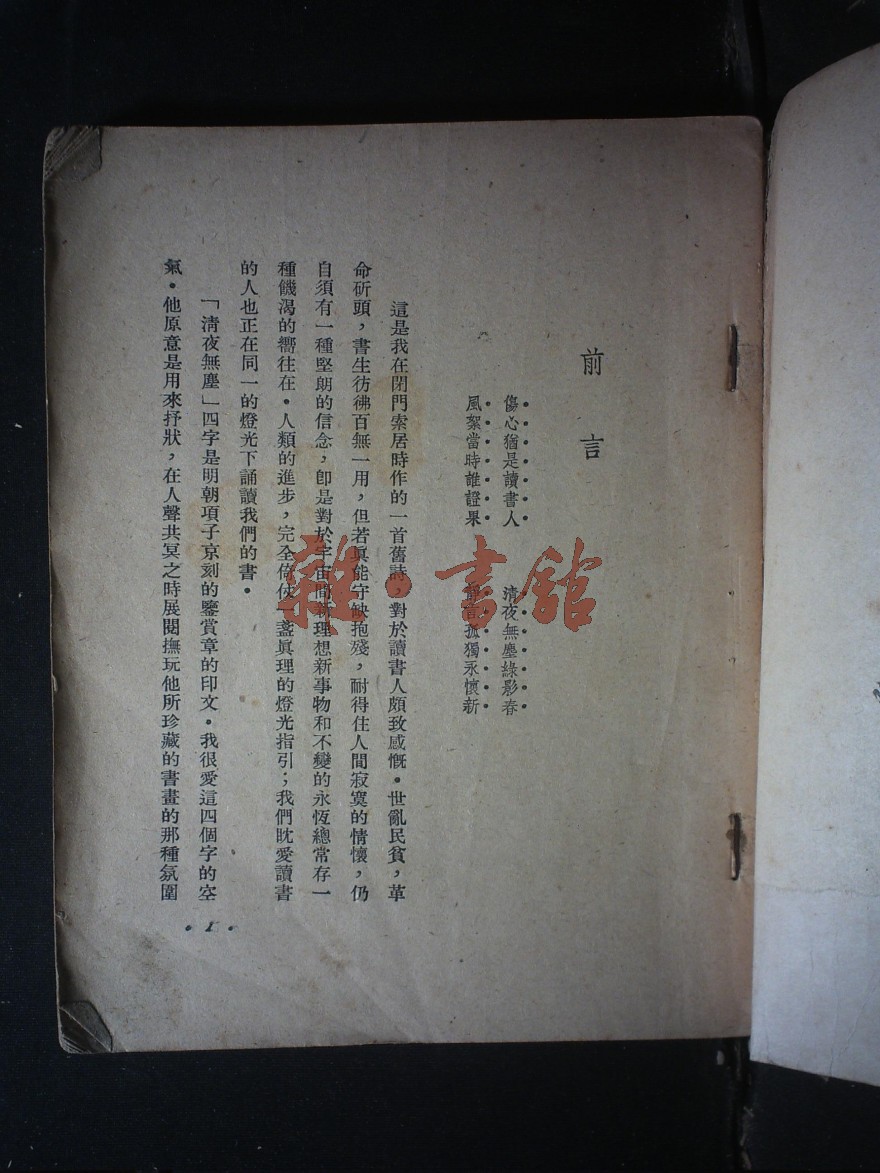 前言
傷心猶是讀書人　清夜無塵綠影春
風絮當時誰證果　靜言孤獨永懷新
這是我在閉門索居時作的一首舊詩，對於讀書人頗致感慨。世亂民貧，革
命斫頭，書生彷彿百無一用，但若眞能守缺抱殘，耐得住人間寂寞的情懷，仍
自須有一種堅朗的信念，卽是對於宇宙間新理想新事物和不變的永恆總常存一
種饑渴的嚮往在。人類的進步，完全倚仗一盞眞理的燈光指引；我們耽愛讀書
的人也正在同一的燈光下誦讀我們的書。
「清夜無塵」四字是明朝項子京刻的鑒賞章的印文。我很愛這四個字的空
氣。他原意是用來抒狀，在人聲共冥之時展閱撫玩他所珍藏的書畫的那種氛圍
·1·
雜·書館